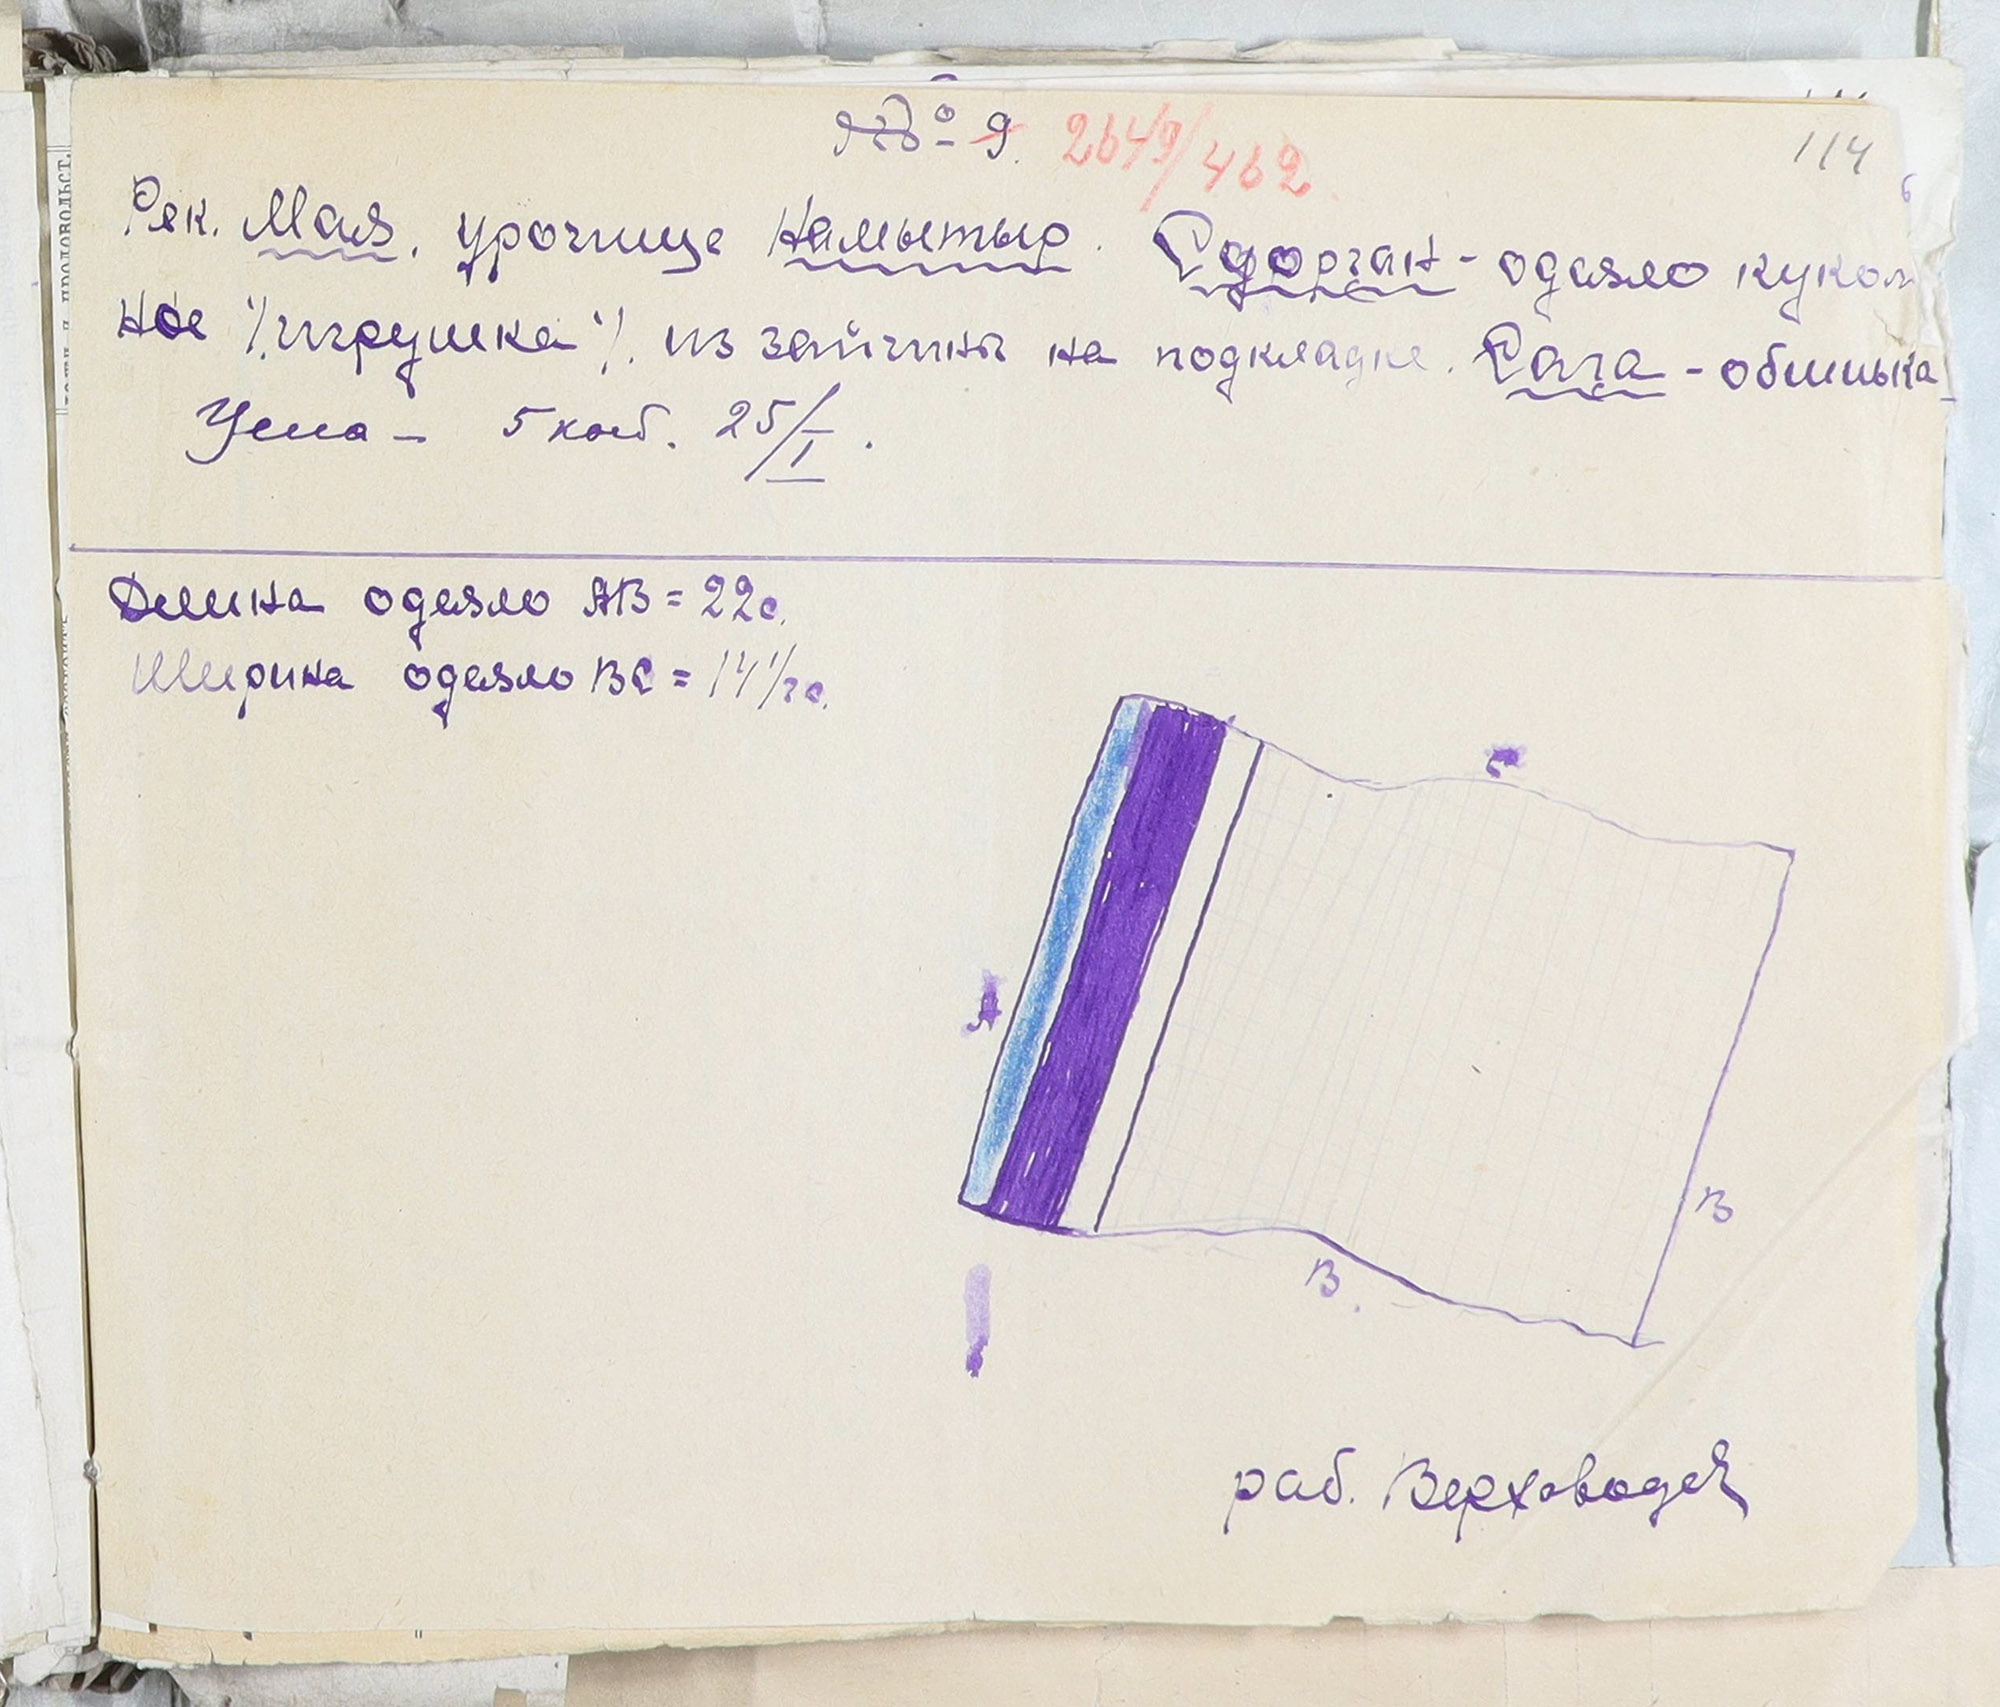 № 9. 2649/462
114
Рек. Мая, урочище Намытыр. Суорган - одеяло куколь
ное "/игрушка"/. из зайчины на подкладке. Сага - обшивка
Цена - 5 коп. 25/I.
Длина одеяло АВ = 22с.
Ширина одеяло ВС = 14 1/2 с.
С
А
В
В
раб. Верховодей